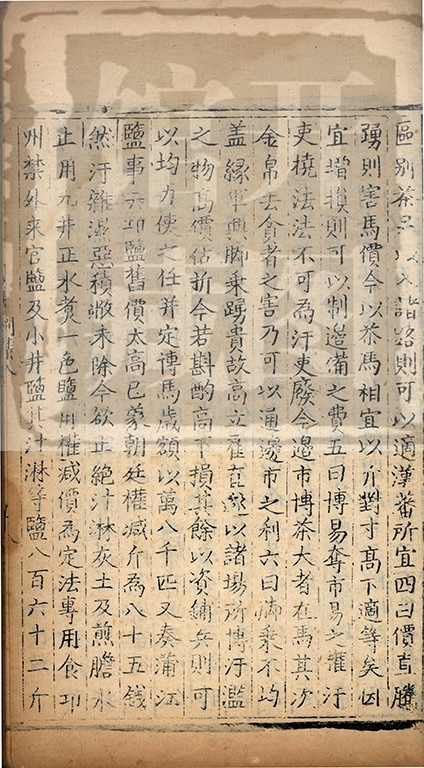 區別茶品以入諸路則可以適漢蕃所宜四曰價直騰
踴則害馬價今以茶馬相宜以斤對寸高下適等矣因
宜增損則可以制邊備之費五曰博易奪市易之權汙
吏橈法法不可為汙吏廢今邊市博茶大者在馬其次
金帛去貪者之害乃可以通邊市之利六曰腳乗不均
蓋縁軍興腳乗踴貴故高立雇直遂以諸場所博汙濫
之物高價估折今若斟酌高下損其餘以資鋪兵則可
以均力使之任并定博馬歲額以萬八千匹又奏蒲江
鹽事六卭鹽舊價太高已蒙朝廷權減斤為八十五錢
然汙雜濕惡積敝未除今欲止絕汁淋灰土及煎膽水
止用九井正水煮一色鹽用權減價為定法專用食卭
州禁外来官鹽及小井鹽其汁淋等鹽八百六十二斤